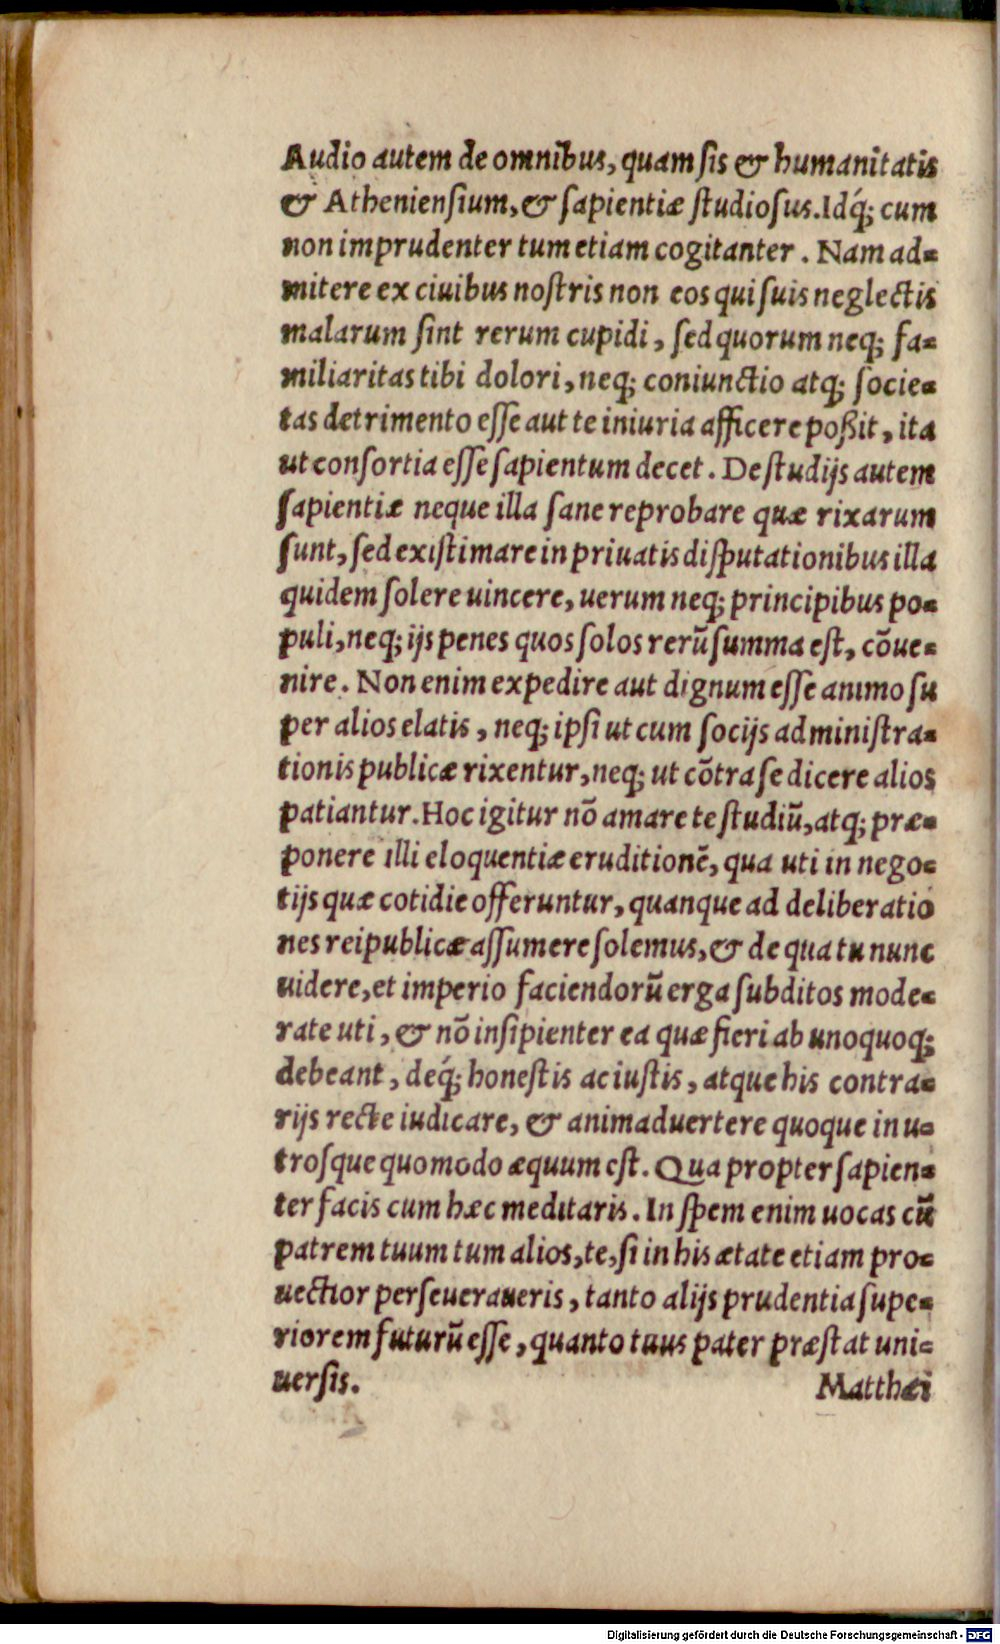 Audio autem de omnibus, quam sis & humanitatis
& Atheniensium, & sapientiæ studiosus. Idq́; cum
non imprudenter tum etiam cogitanter. Nam ad-
mitere ex ciuibus nostris non eos qui suis neglectis
malarum sint rerum cupidi, sed quorum neq; fa-
miliaritas tibi dolori, neq; coniunctio atq; socie-
tas detrimento esse aut te iniuria afficere poßit, ita
ut consortia esse sapientum decet. De studijs autem
sapientiæ neque illa sane reprobare quæ rixarum
sunt, sed existimare in priuatis disputationibus illa
quidem solere uincere, uerum neq; principibus po-
puli, neq; ijs penes quos solos rerū summa est, cōue-
nire. Non enim expedire aut dignum esse animo su
per alios elatis, neq; ipsi ut cum socijs administra-
tionis publicæ rixentur, neq; ut cōtra se dicere alios
patiantur. Hoc igitur nō amare te studiū, atq; præ-
ponere illi eloquentiæ eruditionē, qua uti in nego-
tijs quæ cotidie offeruntur, quanque ad deliberatio
nes reipublicæ assumere solemus, & de qua tu nunc
uidere, et imperio faciendorū erga subditos mode-
rate uti, & nō insipienter ea quæ fieri ab unoquoq;
debeant, deq́; honestis ac iustis, atque his contra-
rijs recte iudicare, & animaduertere quoque in u-
trosque quomodo æquum est. Qua propter sapien-
ter facis cum hæc meditaris. In spem enim uocas cū
patrem tuum tum alios, te, si in his ætate etiam pro-
uectior perseueraueris, tanto alijs prudentia supe-
riorem futurū esse, quanto tuus pater præstat uni-
uersis. Matthæi
Digitalisierung gefördert durch die Deutsche Forschungsgemeinschaft - DFG